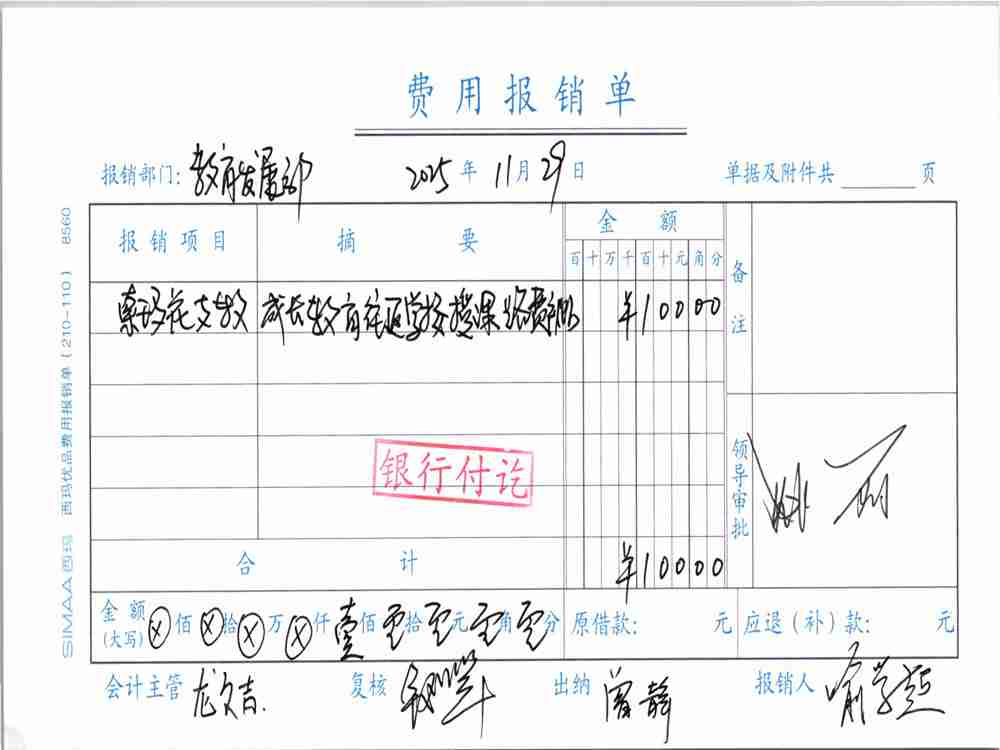 费用报销单
报销部门: 教育发展部 2025年11月29日 单据及附件共 页
报销项目 摘要 金额 备注
百十万千百十元角分
索玛花支教 成长教育往返学校授课路费补助 ¥10000
银行付讫
领导审批
合计 ¥10000
金额(大写) ⊗佰⊗拾⊗万⊗仟壹佰零拾零元零角零分 原借款: 元 应退(补)款: 元
会计主管 龙文吉 复核 出纳 曾静 报销人 喻学超
SIMAA西玛 西玛优品费用报销单(210-110) 8560